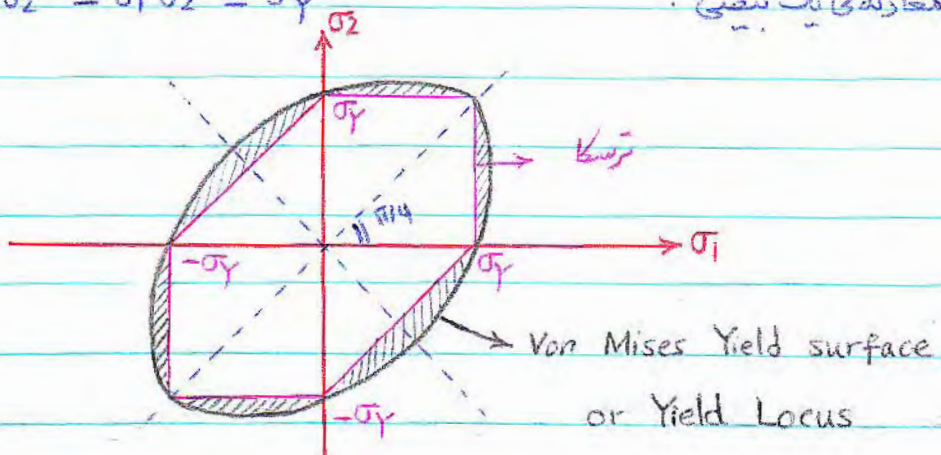 σ₂² - σ₁σ₂ = σ_Y²
معادله‌ی یک بیضی :
σ₂
σ_Y
ترسکا
π/4
-σ_Y
σ_Y
σ₁
Von Mises Yield surface
-σ_Y
or Yield Locus